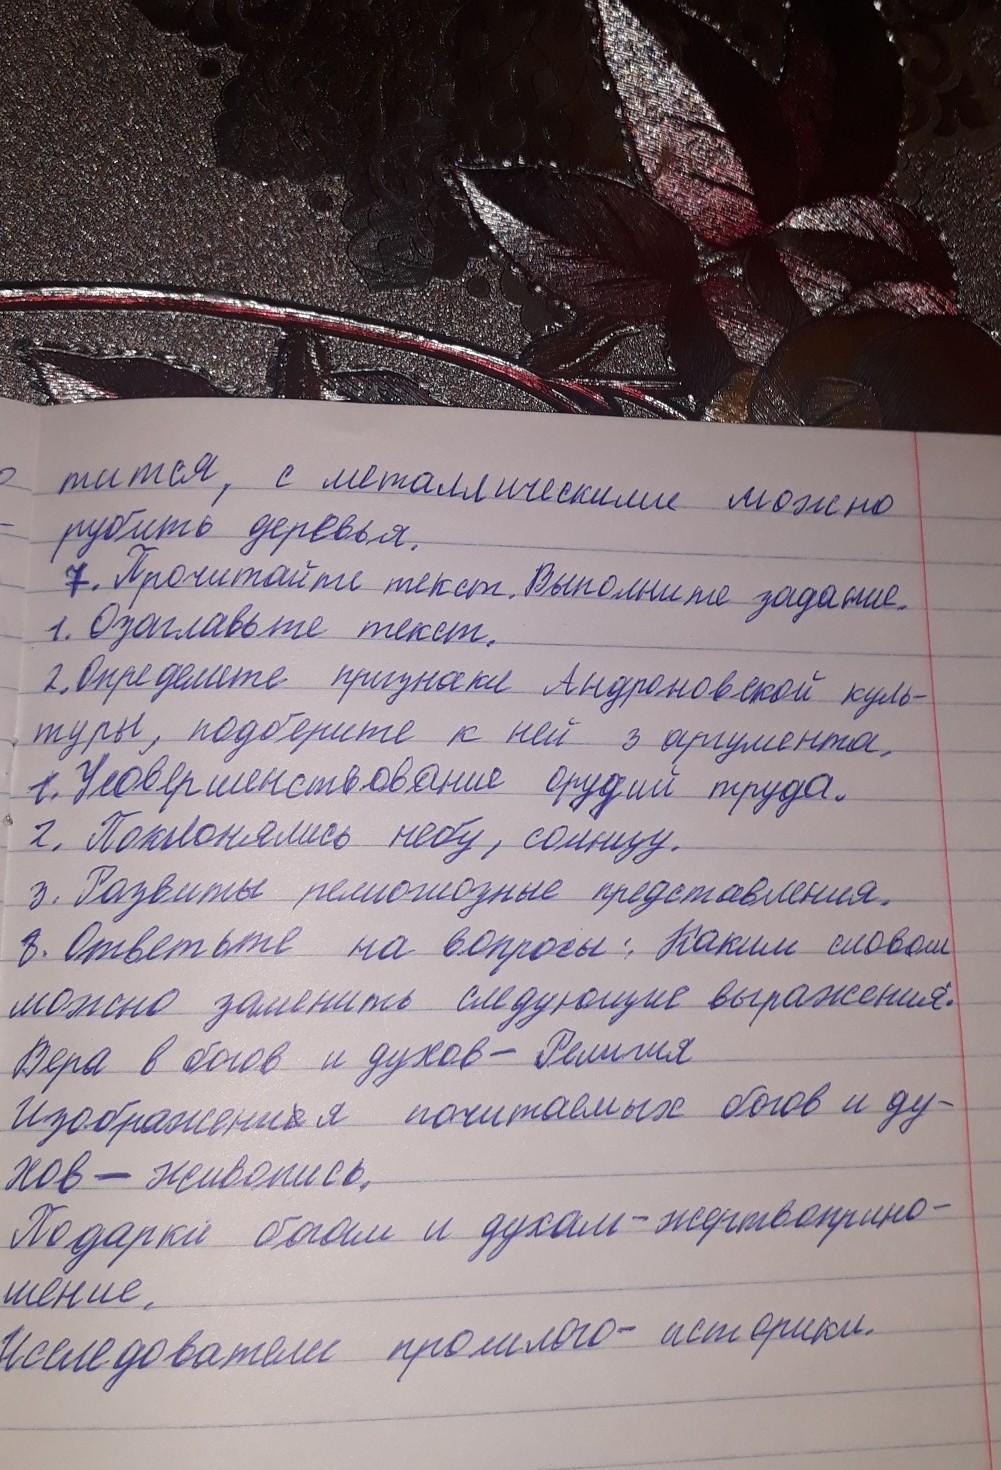 тится, с металлическими можно
рубить деревья.
7. Прочитайте текст. Выполните задание.
1. Озаглавьте текст.
2. Определите признаки Андроновской куль-
туры, подберите к ней 3 аргумента.
1. Усовершенствование орудий труда.
2. Поклонялись небу, солнцу.
3. Развиты религиозные представления.
8. Ответьте на вопросы: Каким словом
можно заменить следующие выражения.
Вера в богов и духов - Религия
Изображения почитаемых богов и ду-
хов - живопись.
Подарки богам и духам - жертвоприно-
шение.
Исследователи прошлого - историки.